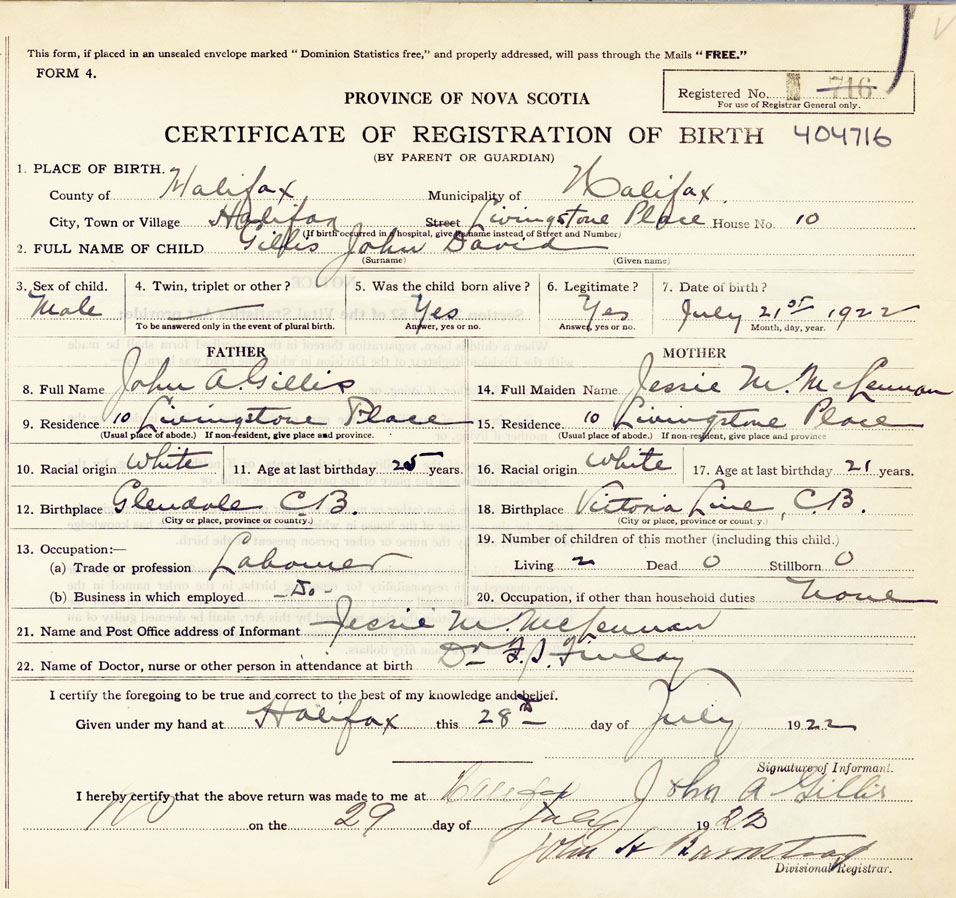 This form, if placed in an unsealed envelope marked "Dominion Statistics free," and properly addressed, will pass through the Mails "FREE."
FORM 4.
Registered No. 716
For use of Registrar General only.
PROVINCE OF NOVA SCOTIA
CERTIFICATE OF REGISTRATION OF BIRTH 404716
(BY PARENT OR GUARDIAN)
1. PLACE OF BIRTH.
County of Halifax Municipality of Halifax
City, Town or Village Halifax Street Livingstone Place House No. 10
(If birth occurred in a hospital, give its name instead of Street and Number)
2. FULL NAME OF CHILD Gillis John David
(Surname) (Given name)
3. Sex of child. 4. Twin, triplet or other? 5. Was the child born alive? 6. Legitimate? 7. Date of birth?
Male Yes Yes July 21st 1922
To be answered only in the event of plural birth. Answer, yes or no. Answer, yes or no. Month, day, year.
FATHER MOTHER
8. Full Name John A. Gillis 14. Full Maiden Name Jessie M. McLennan
9. Residence 10 Livingstone Place 15. Residence 10 Livingstone Place
(Usual place of abode.) If non-resident, give place and province. (Usual place of abode.) If non-resident, give place and province
10. Racial origin White 11. Age at last birthday 25 years. 16. Racial origin White 17. Age at last birthday 21 years.
12. Birthplace Glendale C.B. 18. Birthplace Victoria Line, C.B.
(City or place, province or country.) (City or place, province or country.)
13. Occupation:— 19. Number of children of this mother (including this child.)
(a) Trade or profession Labourer Living 2 Dead 0 Stillborn 0
(b) Business in which employed - Do - 20. Occupation, if other than household duties None
21. Name and Post Office address of Informant Jessie M. McLennan
22. Name of Doctor, nurse or other person in attendance at birth Dr F.S. Finlay
I certify the foregoing to be true and correct to the best of my knowledge and belief.
Given under my hand at Halifax this 28th day of July 1922
Signature of Informant.
John A Gillis
I hereby certify that the above return was made to me at Halifax
on the 29 day of July 1922
John H
Divisional Registrar.